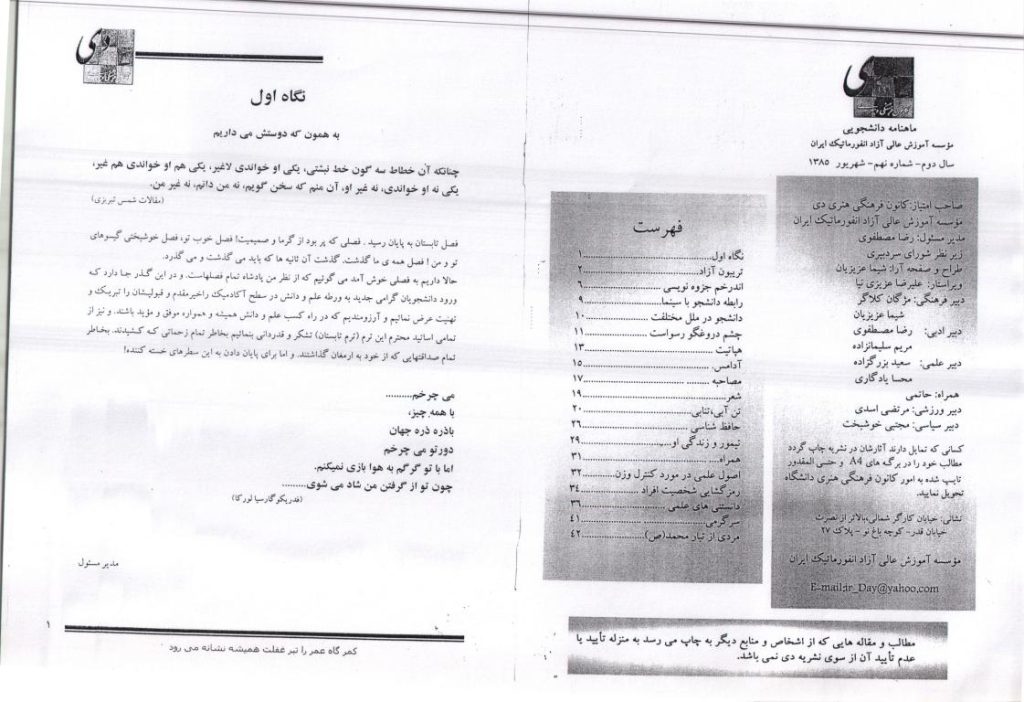 دی
ماهنامه دانشجویی
مؤسسه آموزش عالی آزاد انفورماتیک ایران
سال دوم- شماره نهم- شهریور ۱۳۸۵
صاحب امتیاز:کانون فرهنگی هنری دی
مؤسسه آموزش عالی آزاد انفورماتیک ایران
مدیر مسئول: رضا مصطفوی
زیر نظر شورای سردبیری
طراح و صفحه آرا: شیما عزیزیان
ویراستار: علیرضا عزیزی نیا
دبیر فرهنگی: مژگان کلاگر
شیما عزیزیان
دبیر ادبی: رضا مصطفوی
مریم سلیمانزاده
دبیر علمی: سعید بزرگزاده
محسا یادگاری
همراه: حاتمی
دبیر ورزشی: مرتضی اسدی
دبیر سیاسی: مجتبی خوشبخت
کسانی که تمایل دارند آثارشان در نشریه چاپ گردد
مطالب خود را در برگه های A4 و حتی المقدور
تایپ شده به امور کانون فرهنگی هنری دانشگاه
تحویل نمایند.
نشانی: خیابان کارگر شمالی،بالاتر از نصرت
خیابان قدر- کوچه باغ نو - پلاک ۲۷
مؤسسه آموزش عالی آزاد انفورماتیک ایران
E-mail:ir_Day@yahoo.com
فهرست
نگاه اول..........۱
تریبون آزاد..........۲
اندرخم جزوه نویسی..........۶
رابطه دانشجو با سینما..........۹
دانشجو در ملل مختلفت..........۱۰
چشم دروغگو رسواست..........۱۱
هپاتیت..........۱۳
آدامس..........۱۵
مصاحبه..........۱۷
شعر..........۱۹
تن آبی،تنابی..........۲۰
حافظ شناسی..........۲۶
تیمور و زندگی او..........۲۹
همراه..........۳۱
اصول علمی در مورد کنترل وزن..........۳۲
رمزگشایی شخصیت افراد..........۳۴
دانستنی های علمی..........۳۶
سرگرمی..........۴۱
مردی از تبار محمد(ص)..........۴۲
مطالب و مقاله هایی که از اشخاص و منابع دیگر به چاپ می رسد به منزله تأیید یا
عدم تأیید آن از سوی نشریه دی نمی باشد.
دی
نگاه اول
به همون که دوستش می داریم
چنانکه آن خطاط سه گون خط نبشتی، یکی او خواندی لاغیر، یکی هم او خواندی هم غیر،
یکی نه او خواندی، نه غیر او، آن منم که سخن گویم، نه من دانم، نه غیر من.
(مقالات شمس تبریزی)
فصل تابستان به پایان رسید . فصلی که پر بود از گرما و صمیمیت! فصل خوب تو، فصل خوشبختی گیسوهای
تو و من ! فصل همه ی ما گذشت. گذشت آن ثانیه ها که باید می گذشت و می گذرد.
حالا داریم به فصلی خوش آمد می گوئیم که از نظر من پادشاه تمام فصلهاست. و در این گذر جا دارد که
ورود دانشجویان گرامی جدید به ورطه علم و دانش در سطح آکادمیک راخیرمقدم و قبولیشان را تبریک و
تهنیت عرض نمائیم و آرزومندیم که در راه کسب علم و دانش همیشه و همواره موفق و مؤید باشند. و نیز از
تمامی اساتید محترم این ترم (ترم تابستان) تشکر و قدردانی بنمائیم بخاطر تمام زحماتی که کشیدند. بخاطر
تمام صداقتهایی که از خود به ارمغان گذاشتند. و اما برای پایان دادن به این سطرهای خسته کننده!
می چرخم..........
با همه چیز،
باذره ذره جهان
دورتو می چرخم
اما با تو گرگم به هوا بازی نمیکنم.
چون تو از گرفتن من شاد می شوی........
(فدریکوگارسیا لورکا)
مدیر مسئول
۱
کمر گاه عمر را تیر غفلت همیشه نشانه می رود